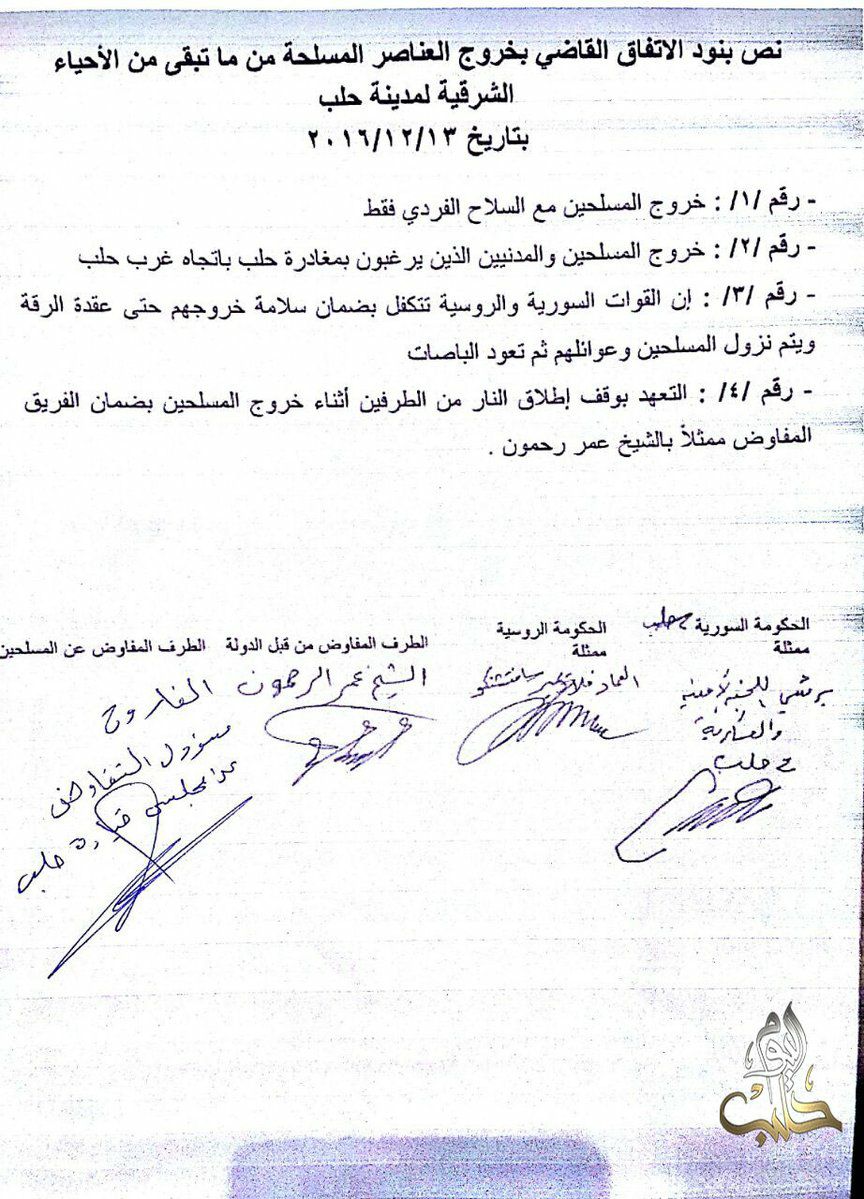 نص بنود الاتفاق القاضي بخروج العناصر المسلحة من ما تبقى من الأحياء
الشرقية لمدينة حلب
بتاريخ ٢٠١٦/١٢/١٣
- رقم /١/ : خروج المسلحين مع السلاح الفردي فقط
- رقم /٢/ : خروج المسلحين والمدنيين الذين يرغبون بمغادرة حلب باتجاه غرب حلب
- رقم /٣/ : إن القوات السورية والروسية تتكفل بضمان سلامة خروجهم حتى عقدة الرقة
ويتم نزول المسلحين وعوائلهم ثم تعود الباصات
- رقم /٤/ : التعهد بوقف إطلاق النار من الطرفين أثناء خروج المسلحين بضمان الفريق
المفاوض ممثلاً بالشيخ عمر رحمون .
الحكومة السورية حلب
ممثلة
للجنة الأمنية
والعسكرية
حلب
الحكومة الروسية
ممثلة
العماد
الطرف المفاوض من قبل الدولة
الشيخ عمر الرحمون
الطرف المفاوض عن المسلحين
الفاروق
مسؤول التفاوض
مجلس قيادة حلب
حلب اليوم